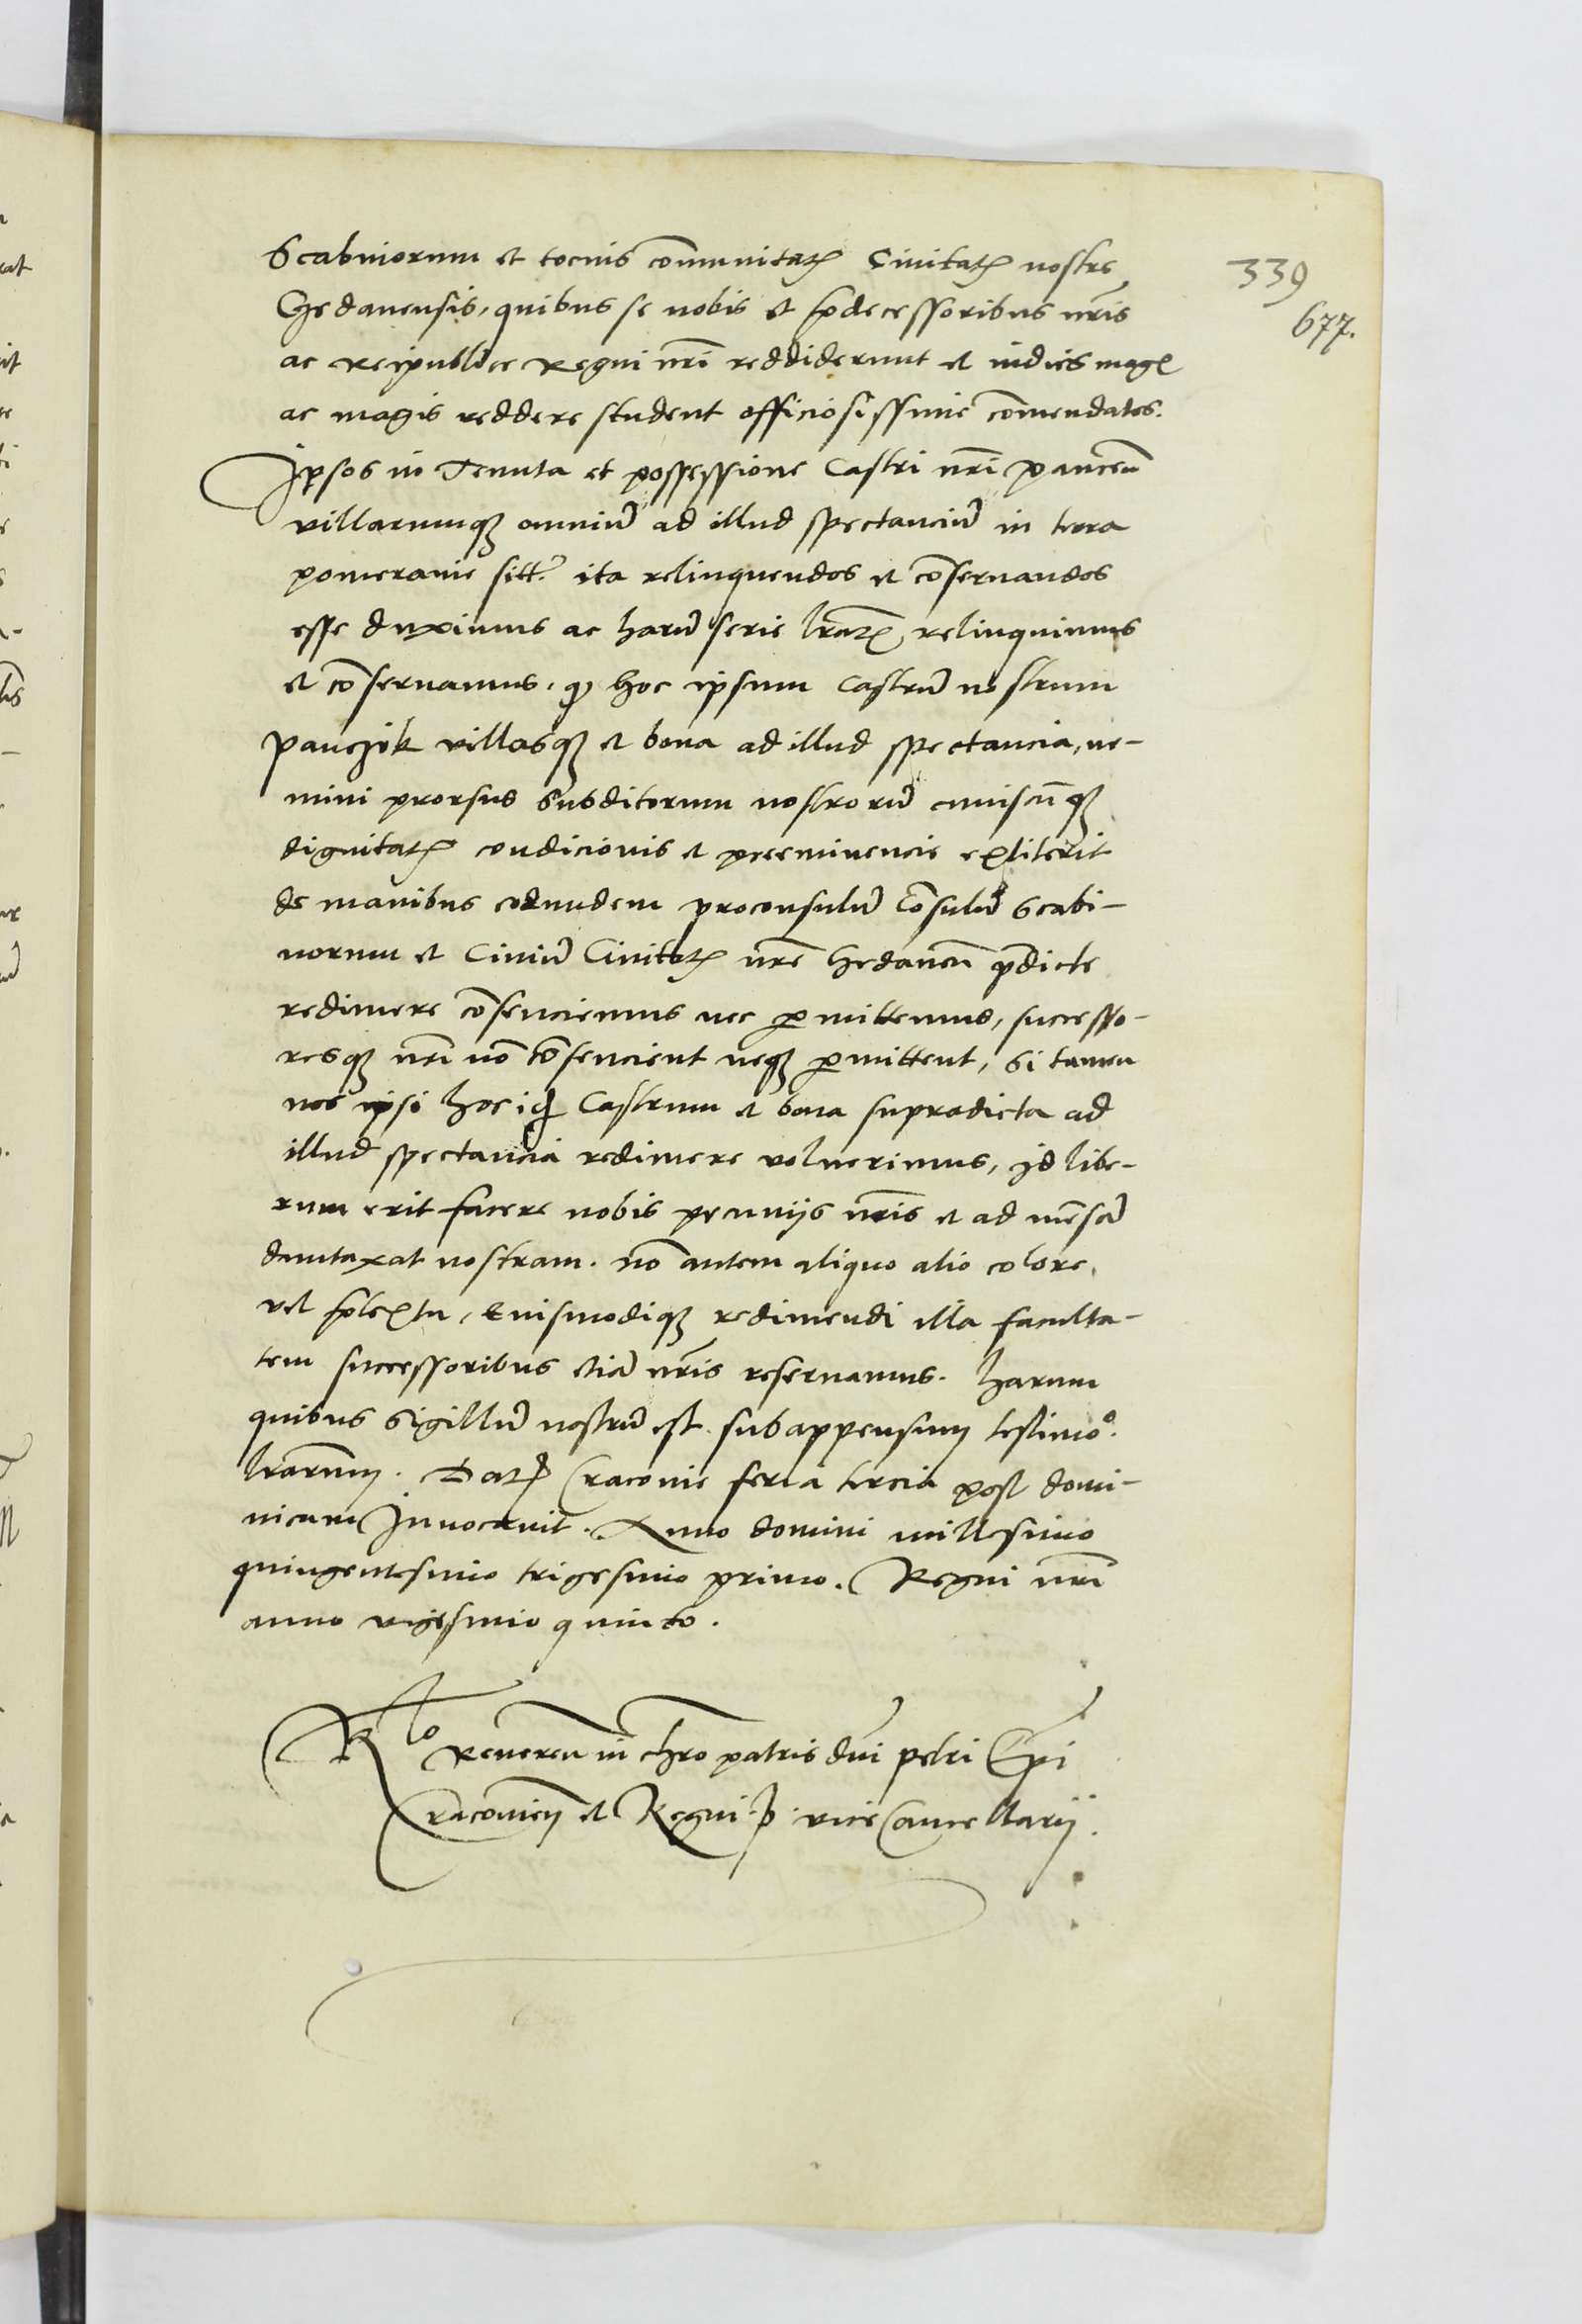 Scabiniorum et tocius communitatis Civitatis nostre
339
Gedanensis, quibus se nobis et predecessoribus nris
677.
ac reipublice Regni nri reddiderunt et indies magis
ac magis reddere student officiosissime commendatos.
Ipsos in Tenuta et possessione Castri nri Paucen
villarumque omniu ad illud spectanciu in terra
pomeranie sitt. ita relinquendos et conservandos
esse duximus ac haru serie lrarum relinquimus
et conservamus. quod hoc ipsum Castru nostrum
Pauczik villasque et bona ad illud spectancia, ne-
mini prorsus Subditorum nostroru cuiuscunque
dignitatis condicionis et preeminencie extiterit
de manibus eorundem proconsulu Consulu Scabi-
norum et Civiu Civitatis nre Gedanen predicte
redimere consenciemus nec permittemus, successo-
resque nri non consencient neque permittent, Si tamen
nos ipsi hoc idem Castrum et bona supradicta ad
illud spectancia redimere voluerimus, id libe-
rum erit facere nobis pecuniis nris et ad mensa
dumtaxat nostram. non autem aliquo alio colore
vel pretextu, Euismodique redimendi illa faculta-
tem successoribus etia nris reservamus. harum
quibus Sigillu nostru est subappensum testimo.
lrarum. Datum Cracovie feria tercia post domi-
nicam Invocavit. Anno domini millesimo
quingentesimo trigesimo primo. Regni nri
anno vigesimo quinto.
Rlo Reveren in chro patris dni petri Epi
Cracovien et Regni P. vice Cancellarii.